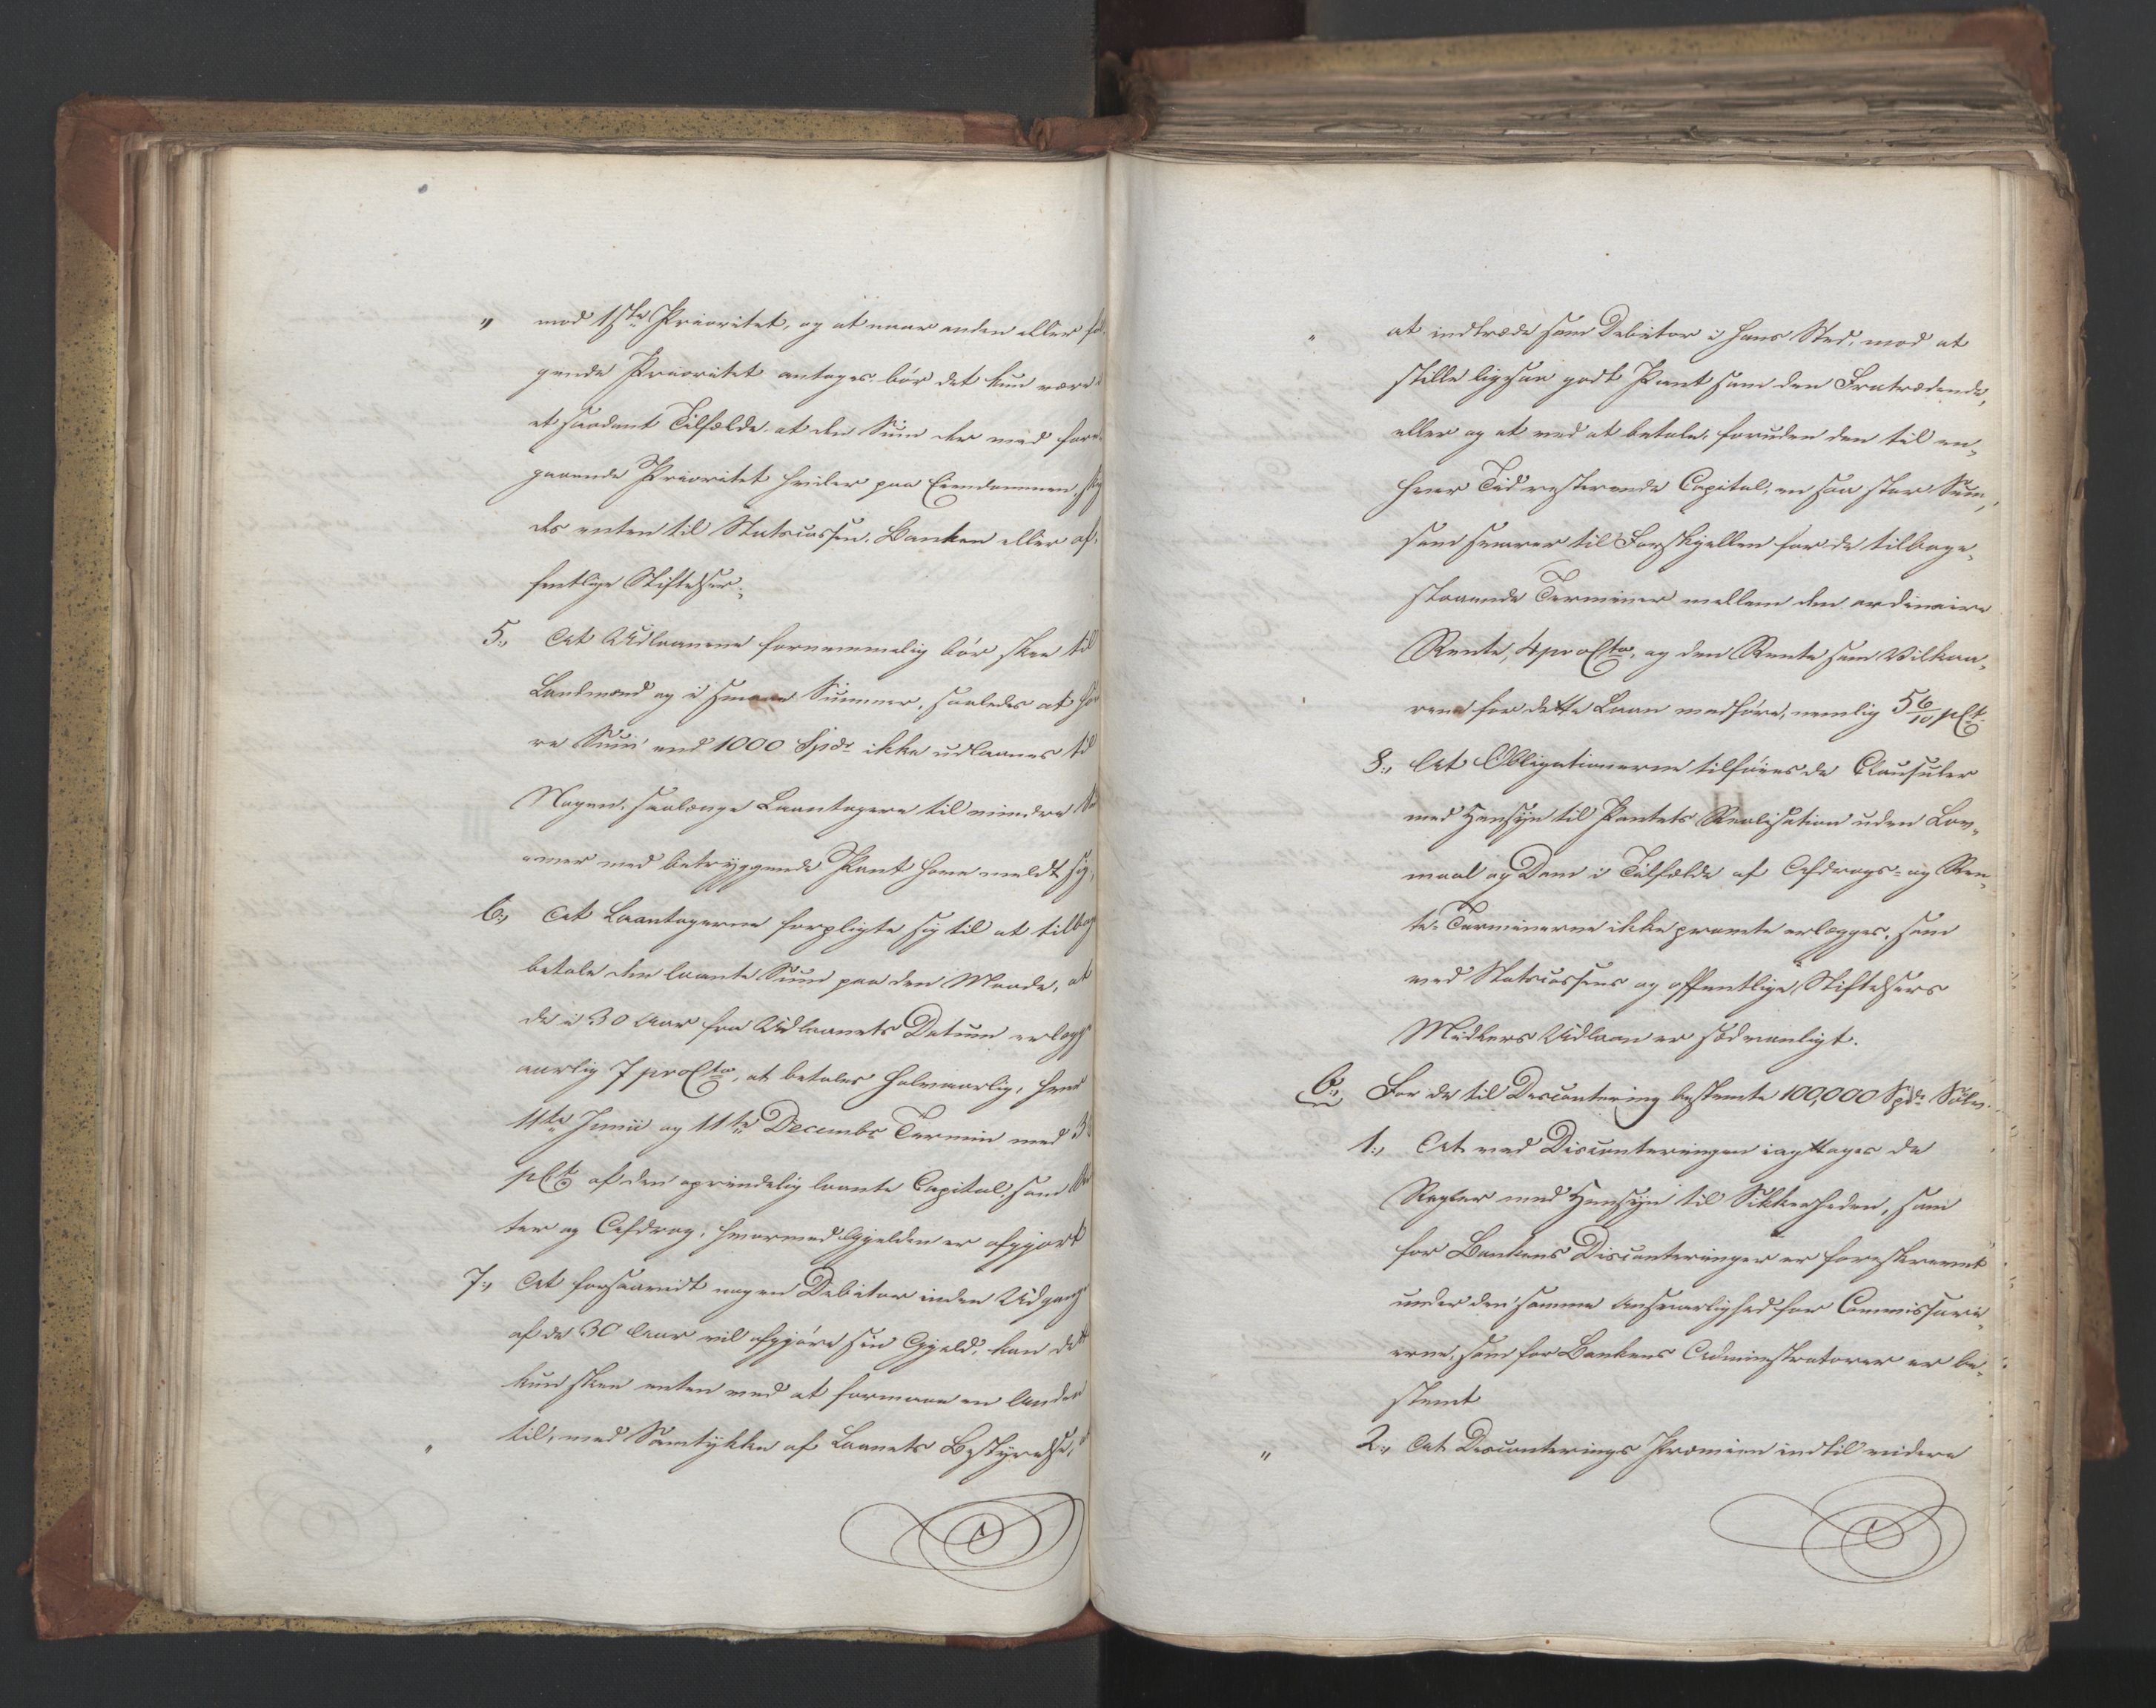 " mod 1ste Prioritet, og at naar anden eller føl-
gende Prioritet antages, bör det kun være i
et saadant Tilfælde at den Sum der med fore-
gaaende Prioritet hviler paa Eiendommen, skyl
des enten til Statscassen, Banken eller of-
fentlige Stiftelser;
5., At Udlaanene fornemmelig bör skee til
Landmænd og i smaae Summer, saaledes at hö
re Sum end 1000 Spdr ikke udlaanes til
Nogen, saalænge Laantagere til mindre Su
mer med betryggende Pant have meldt sig,
6., At Laantagerne forpligte sig til at tilbage
betale den laante Sum paa den Maade, at
de i 30 Aar fra Udlaanets Datum erlægge
aarlig 7 pro Cto, at betales halvaarlig, hver
11te Junii og 11te Decembr Termin med 3½
pCto af den oprindelig laante Capital, som Ren
ter og Afdrag, hvormed Gjelden er afgjort
7., At forsaavidt nogen Debitor inden Udgang
af de 30 Aar vil afgjöre sin Gjeld, kan det
kun skee enten ved at formaae en Anden
" til, med Samtykke af Laanets Bestyrelse,
" at indtræde som Debitor i hans Sted, mod at
stille ligesaa godt Pant som den Fratrædende,
eller og at ved at betale, foruden den til en-
hver Tid resterende Capital, en saa stor Sum,
som svarer til Forskjellen for de tilbage-
staaende Terminer mellem den ordinaire
Rente, 4 pro Cto, og den Rente som Vilkaa-
rene for dette Laan medföre, nemlig 5 6/10 pCt.
8., At Obligationerne tilföies de Clausuler
med Hensyn til Pantets Realisation uden Lov-
maal og Dom i Tilfælde af Afdrags- og Ren-
te-Terminerne ikke promte erlægges, som
ved Statscassens og offentlige Stiftelsers
Midlers Udlaan er sædvanligt.
C., For de til Discontering bestemte 100,000 Spdr Sölv.
1., At ved Disconteringen iagttages de
Regler med Hensyn til Sikkerheden, som
for Bankens Disconteringer er foreskrevet
under den samme Ansvarlighed for Commissari-
erne, som for Bankens Administratorer er be-
stemt
" 2., At Disconterings Præmien indtil videre